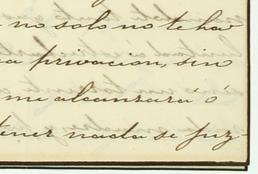 no solo no te hav
a privacion, sin
me alcanzará ó
tener nada se juz-